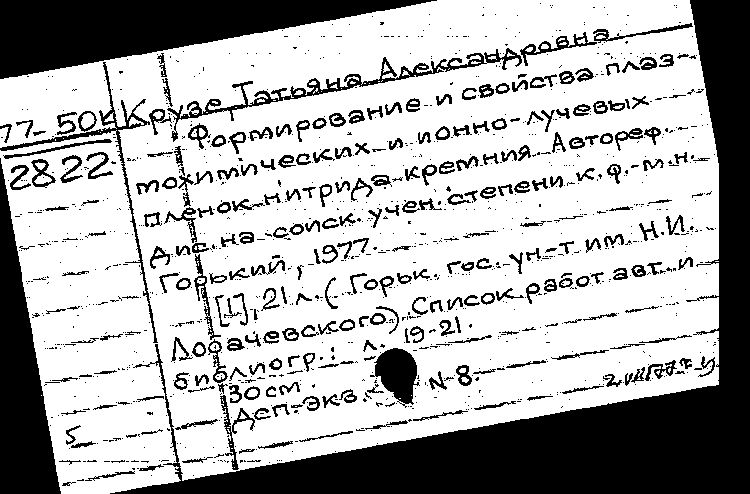 77-50к Крузе Татьяна Александровна.
2822
Формирование и свойства плаз-
мохимических и ионно-лучевых
пленок нитрида кремния. Автореф.
дис. на соиск. учен. степени к.ф.-м.н.
Горький, 1977.
[1], 21 л. (Горьк. гос. ун-т им. Н.И.
Лобачевского). Список работ авт. и
библиогр.: л. 19-21.
30см.
Деп. экз. N 8.
5